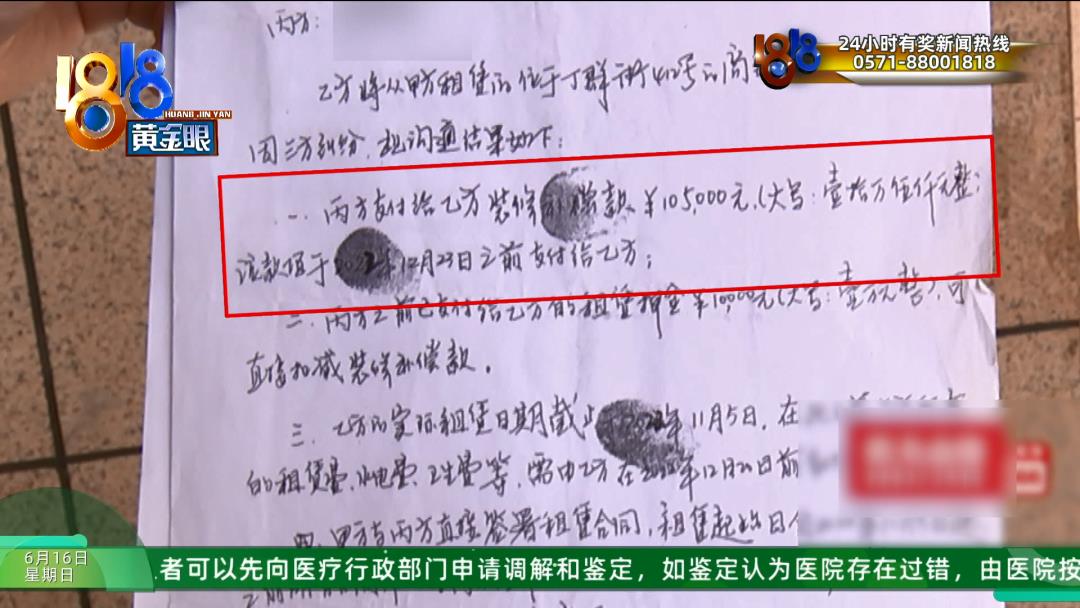 丙方：
1818
HUANG JIN YAN
黄金眼
1818
24小时有奖新闻热线
0571-88001818
乙方将从甲方租赁的位于丁群街412号的商
因三方纠纷，现沟通结果如下：
一、丙方支付给乙方装修补偿款￥105,000元（大写：壹拾万伍仟元整）
该款项于2022年12月23日之前支付给乙方；
二、丙方之前已支付给乙方的租赁押金￥10,000元（大写：壹万元整），可
直接扣减装修补偿款。
三、乙方的实际租赁日期截止2022年11月5日，在
的租赁费、水电费、卫生费等，需由乙方在2022年12月20日前
四、甲方与丙方直接签署租赁合同，租赁起始日
6月16日
星期日
者可以先向医疗行政部门申请调解和鉴定，如鉴定认为医院存在过错，由医院按